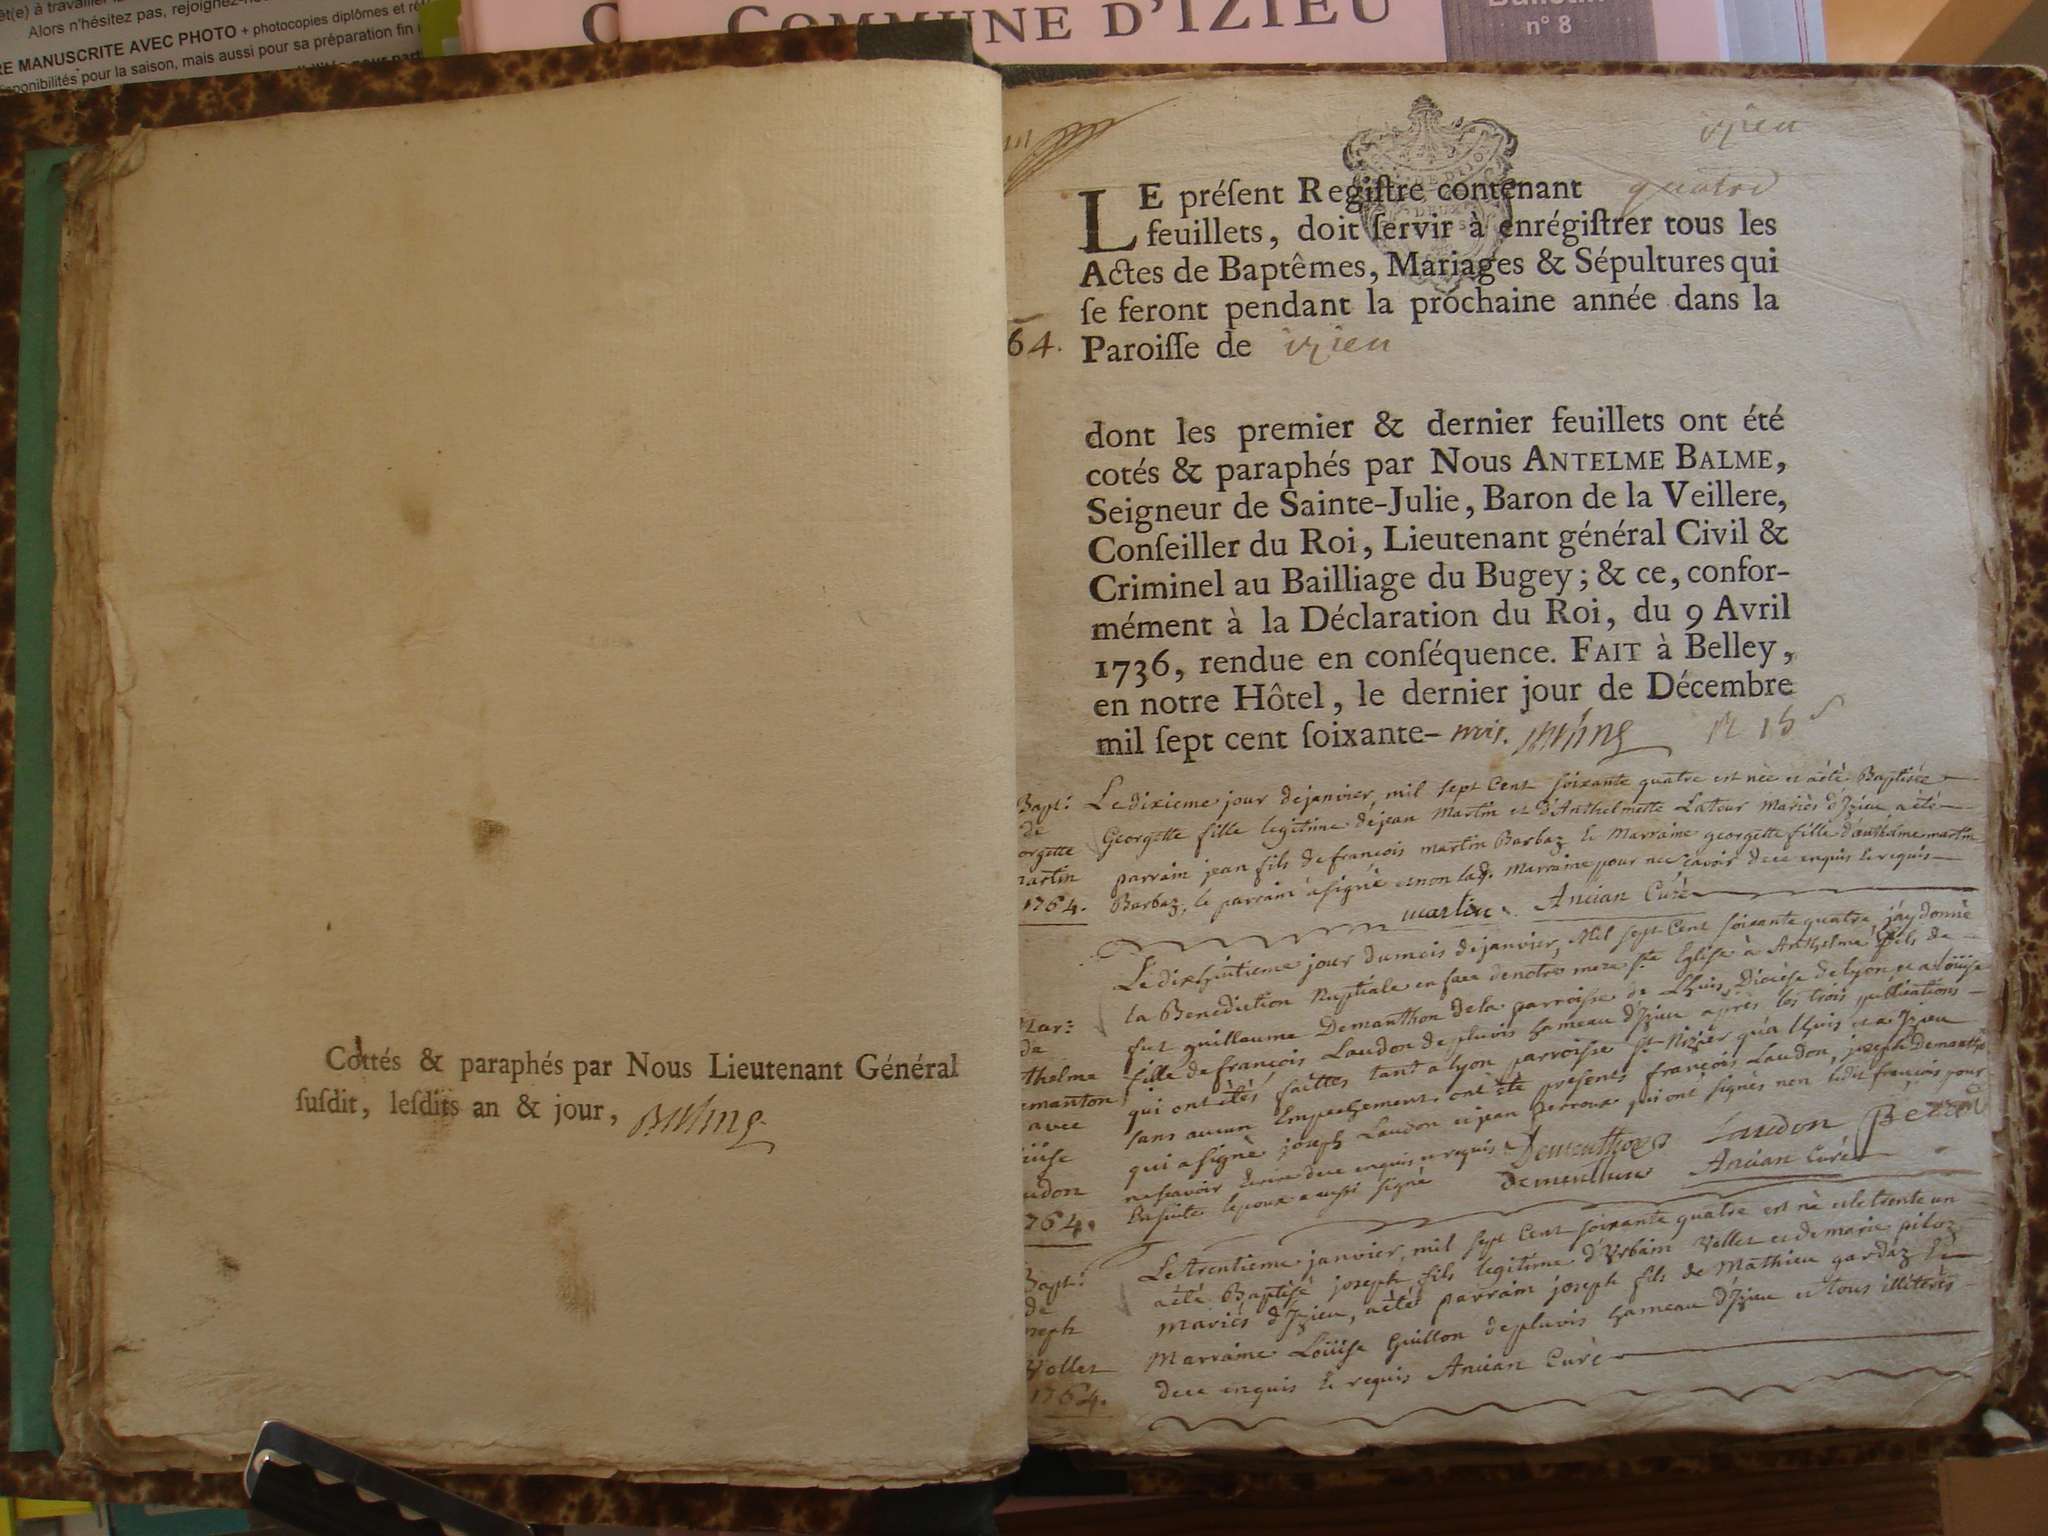 êt(e) à travailler
Alors n'hésitez pas, rejoignez-
RE MANUSCRITE AVEC PHOTO + photocopies diplômes et
disponibilités pour la saison, mais aussi pour sa préparation fin
COMMUNE D'IZIEU
Bulletin
n° 8
Cottés & paraphés par Nous Lieutenant Général
ſuſdit, leſdits an & jour,
izieu
LE préſent Regiſtre contenant quatre
feuillets, doit ſervir à enrégiſtrer tous les
Actes de Baptêmes, Mariages & Sépultures qui
ſe feront pendant la prochaine année dans la
64. Paroiſſe de izieu
dont les premier & dernier feuillets ont été
cotés & paraphés par Nous ANTELME BALME,
Seigneur de Sainte-Julie, Baron de la Veillere,
Conſeiller du Roi, Lieutenant général Civil &
Criminel au Bailliage du Bugey; & ce, confor-
mément à la Déclaration du Roi, du 9 Avril
1736, rendue en conſéquence. FAIT à Belley,
en notre Hôtel, le dernier jour de Décembre
mil ſept cent ſoixante- trois.
Bapt:
de
orgette
martin
1764.
Le dixieme jour de janvier mil sept Cent soixante quatre est née et a été Baptisée
Georgette fille legitime de jean Martin et d'Anthelmette Latour Mariés d'Izieu a été
parrain jean fils de francois martin Barbaz et Marraine georgette fille d'anthelme martin
Barbaz, le parrain a signé et non lad. Marraine pour ne sçavoir de ce enquis et requis
martin Ancian Curé
Mar:
de
thelme
emanton
avec
üise
udon
764.
Le dixhuitieme jour du mois de janvier, Mil sept Cent soixante quatre j'ay donné
la Benediction Nuptiale en face de notre mere Ste Eglise à Anthelme fils de
fut guillaume Demanthon de la parroisse de Lhuis, Diocèse de lyon et a Loüise
fille de françois Laudon de pluvis hameau d'Izieu après les trois publications
qui ont étés faittes tant a lyon parroisse St Nizier qu'a lhuis et a Izieu
sans aucun Empechement, ont été presents françois Laudon, joseph Demanthon
qui a signé joseph Laudon et jean perroux qui ont signés non ledit françois pour
ne sçavoir Ecrire de ce enquis et requis Dementhon Laudon
Ensuite lepoux a aussi signé dementhon Ancian Curé
Bapt:
de
oseph
Vollet
1764.
Le trentieme janvier, mil sept Cent soixante quatre est né et le trente un
a été Baptisé joseph fils legitime d'Urbain Vollet et de marie piloz
Mariés d'Izieu, a été parrain joseph fils de Mathieu gardaz Et
Marraine Loüise Guillon de pluvis hameau d'Izieu et tous illiterés
de ce enquis Et requis Ancian Curé